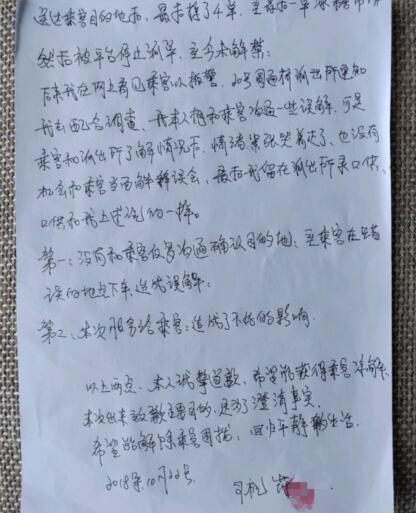 送达乘客目的地后、最后接了4单，至最后一单
然后被平台停止派单，至今未解禁：
后来我在网上看见乘客以报警，20号周通桥派出所通知
我去配合调查、我本人想和乘客沟通一些误解，可是
乘客和派出所了解情况后，情绪紧张哭着走了，也没有
机会和乘客当面解释误会、最后我留在派出所录口供、
口供和我上述说的一样。
第一：没有和乘客仔细沟通确认目的地，至乘客在错
误的地点下车、造成误解：
第2：本次服务给乘客造成了不好的影响.
以上两点、本人诚挚道歉、希望能获得乘客谅解、
本次出来致歉主要目的、是为了澄清事实、
希望能解除乘客困扰，回归平静的生活。
2018年10月22号 司机：